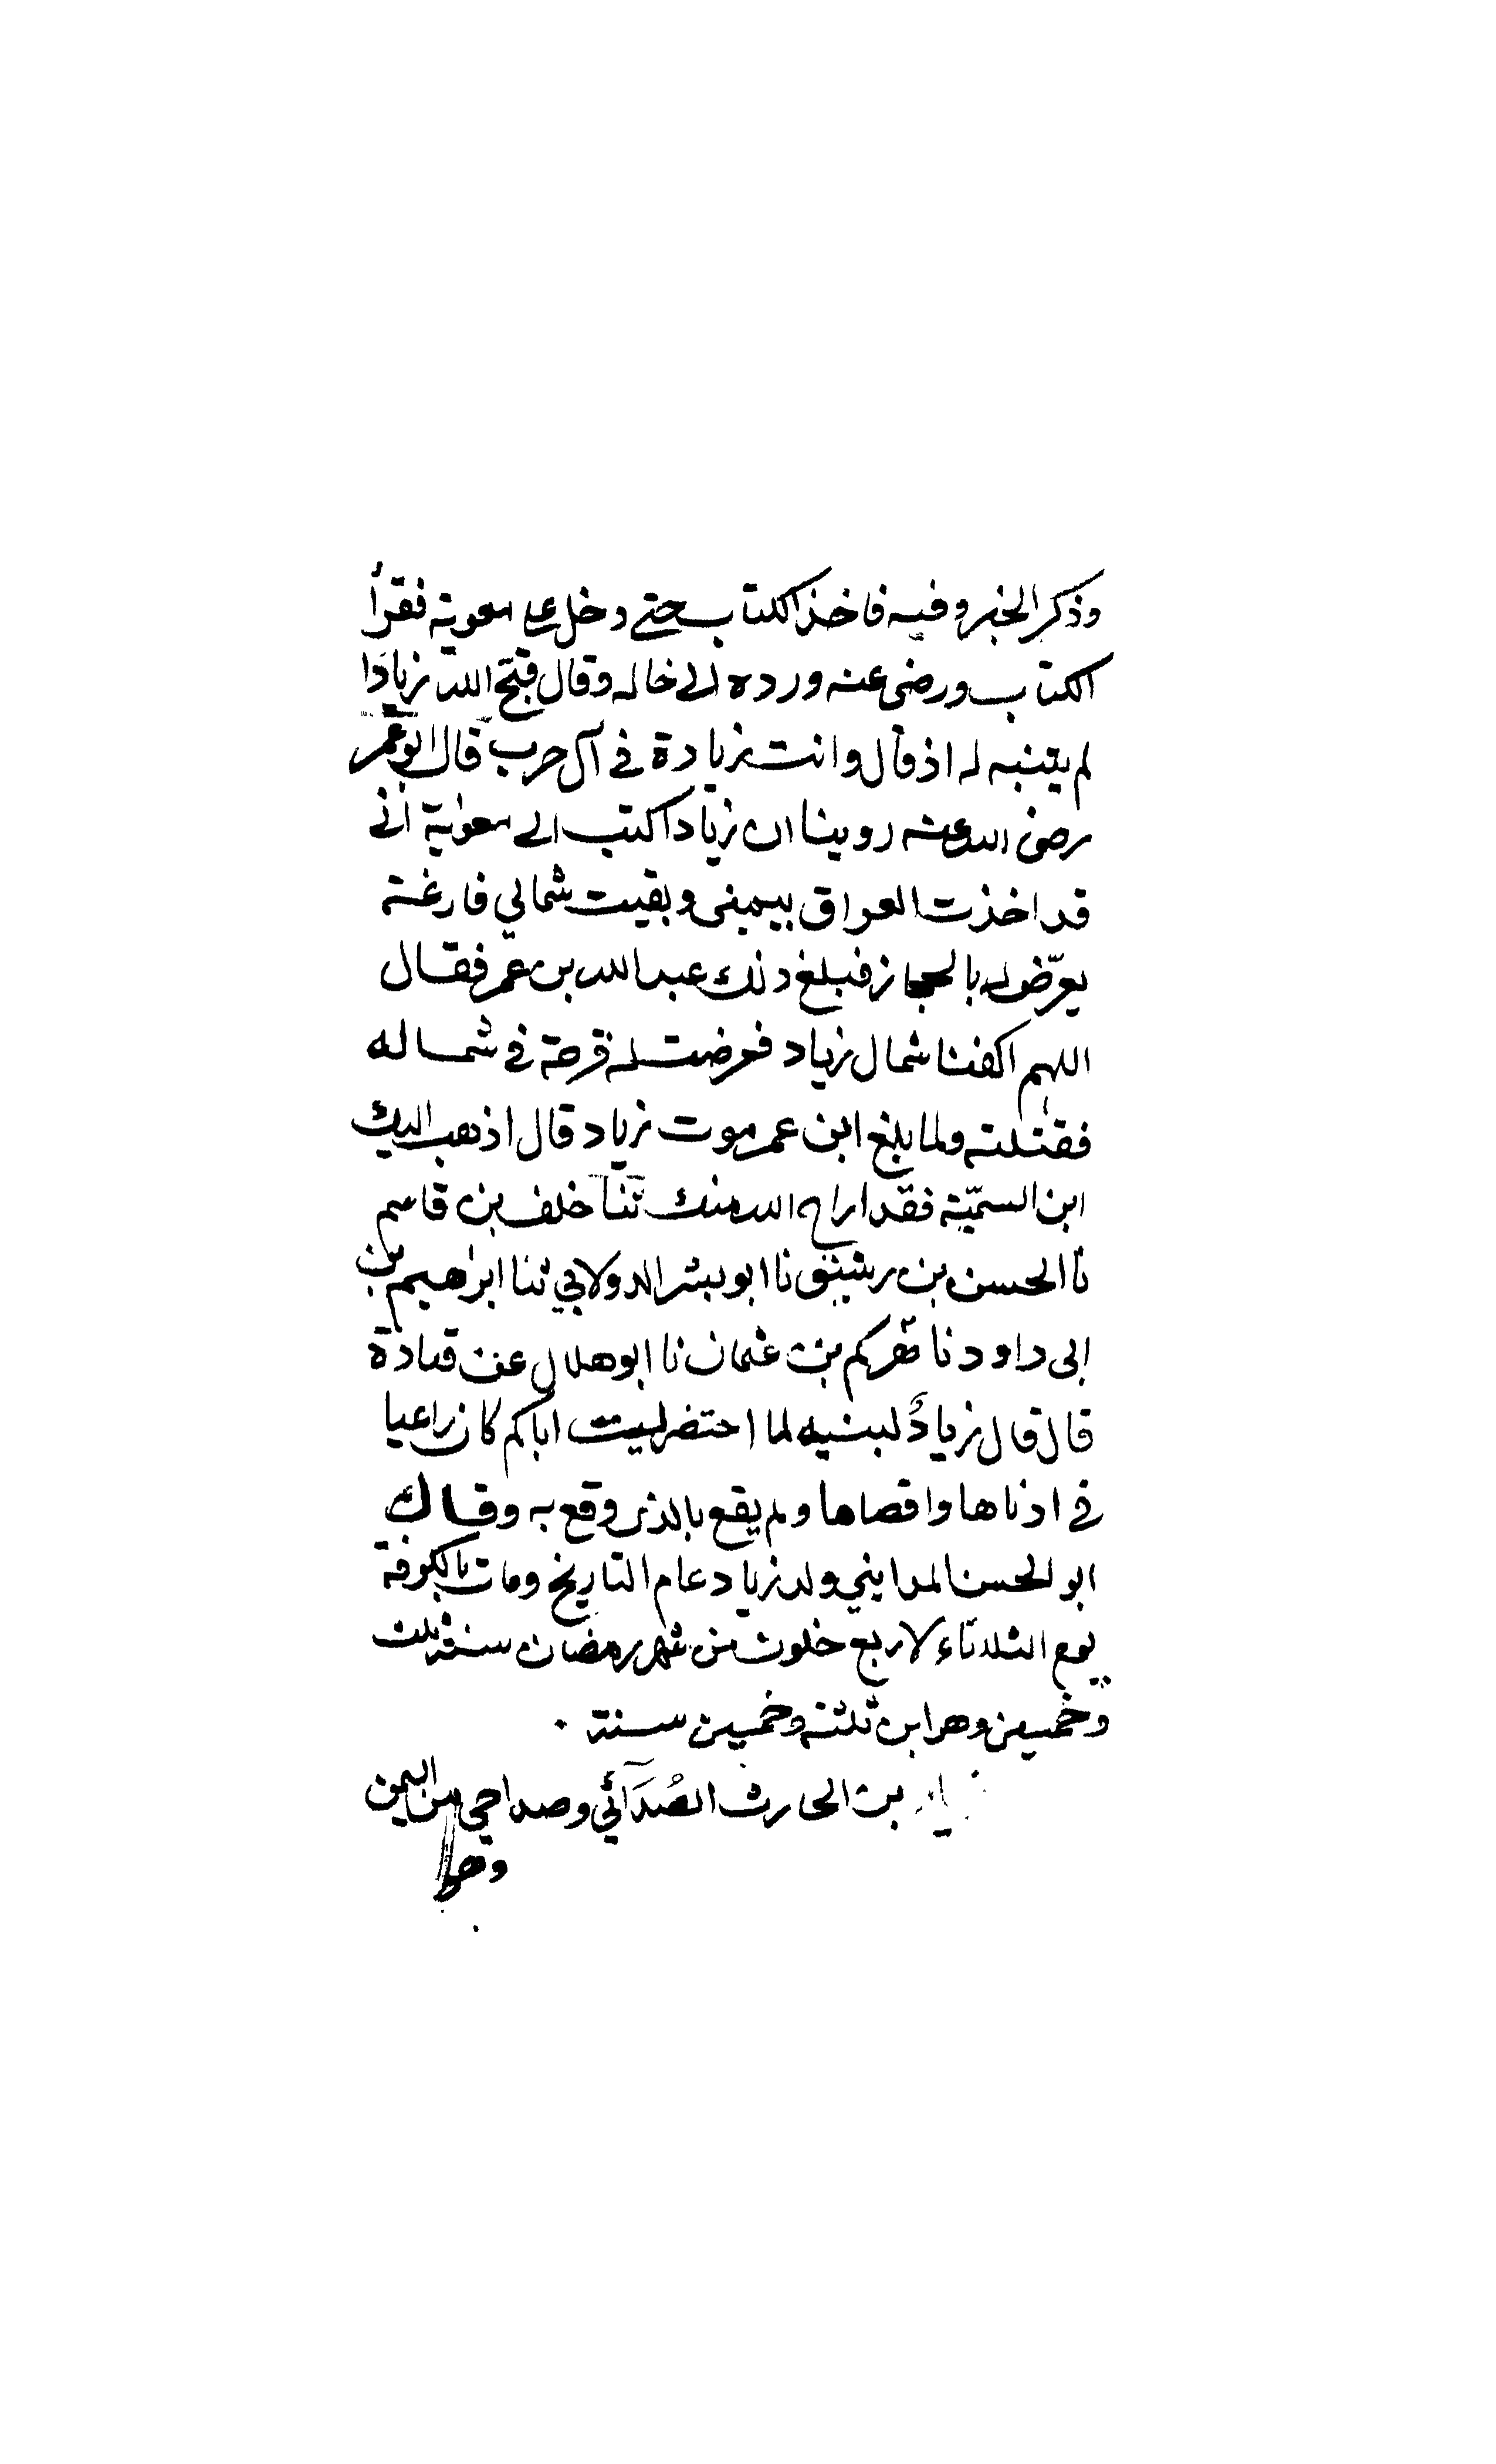 وذكر الخبر وفيه فاخذ الكتاب حتى دخل على معوية فقرأ
الكتاب ورضي عنه ورده الى خاله وقال قبّح الله زيادا
لم يتنبه له اذ قال وانت زيادة في آل حرب قال ابو عمر
رضى الله عنه روينا ان زيادا كتب الى معوية انى
قد اخذت العراق بيمينى وبقيت شمالي فارغة
يعرّض له بالحجاز فبلغ ذلك عبد الله بن عمر فقال
اللهم اكفنا شمال زياد فعرضت له قرحة في شماله
فقتلته ولما بلغ ابن عمر موت زياد قال اذهب اليك
ابن السميّة فقد اراح الله منك ثنا خلف بن قاسم
نا الحسن بن رشيق نا ابو بشر الدولابي ثنا ابراهيم بن
ابى داود نا بن عثمان نا ابو هلال عن قتادة
قال قال زيادٌ لبنيه لما احتضر ليت اباكم كان راعيا
في ادناها واقصاها ولم يقع بالذى وقع به وقال
ابو الحسن المدايني ولد زياد عام التاريخ ومات بالكوفة
يوم الثلاثاء لاربع خلون من شهر رمضان سنة ثلث
وخمسين وهو ابن ثلثة وخمسين سنة .
بن الحارث الصُدَآئي وصدا حي من اليمن
وهو